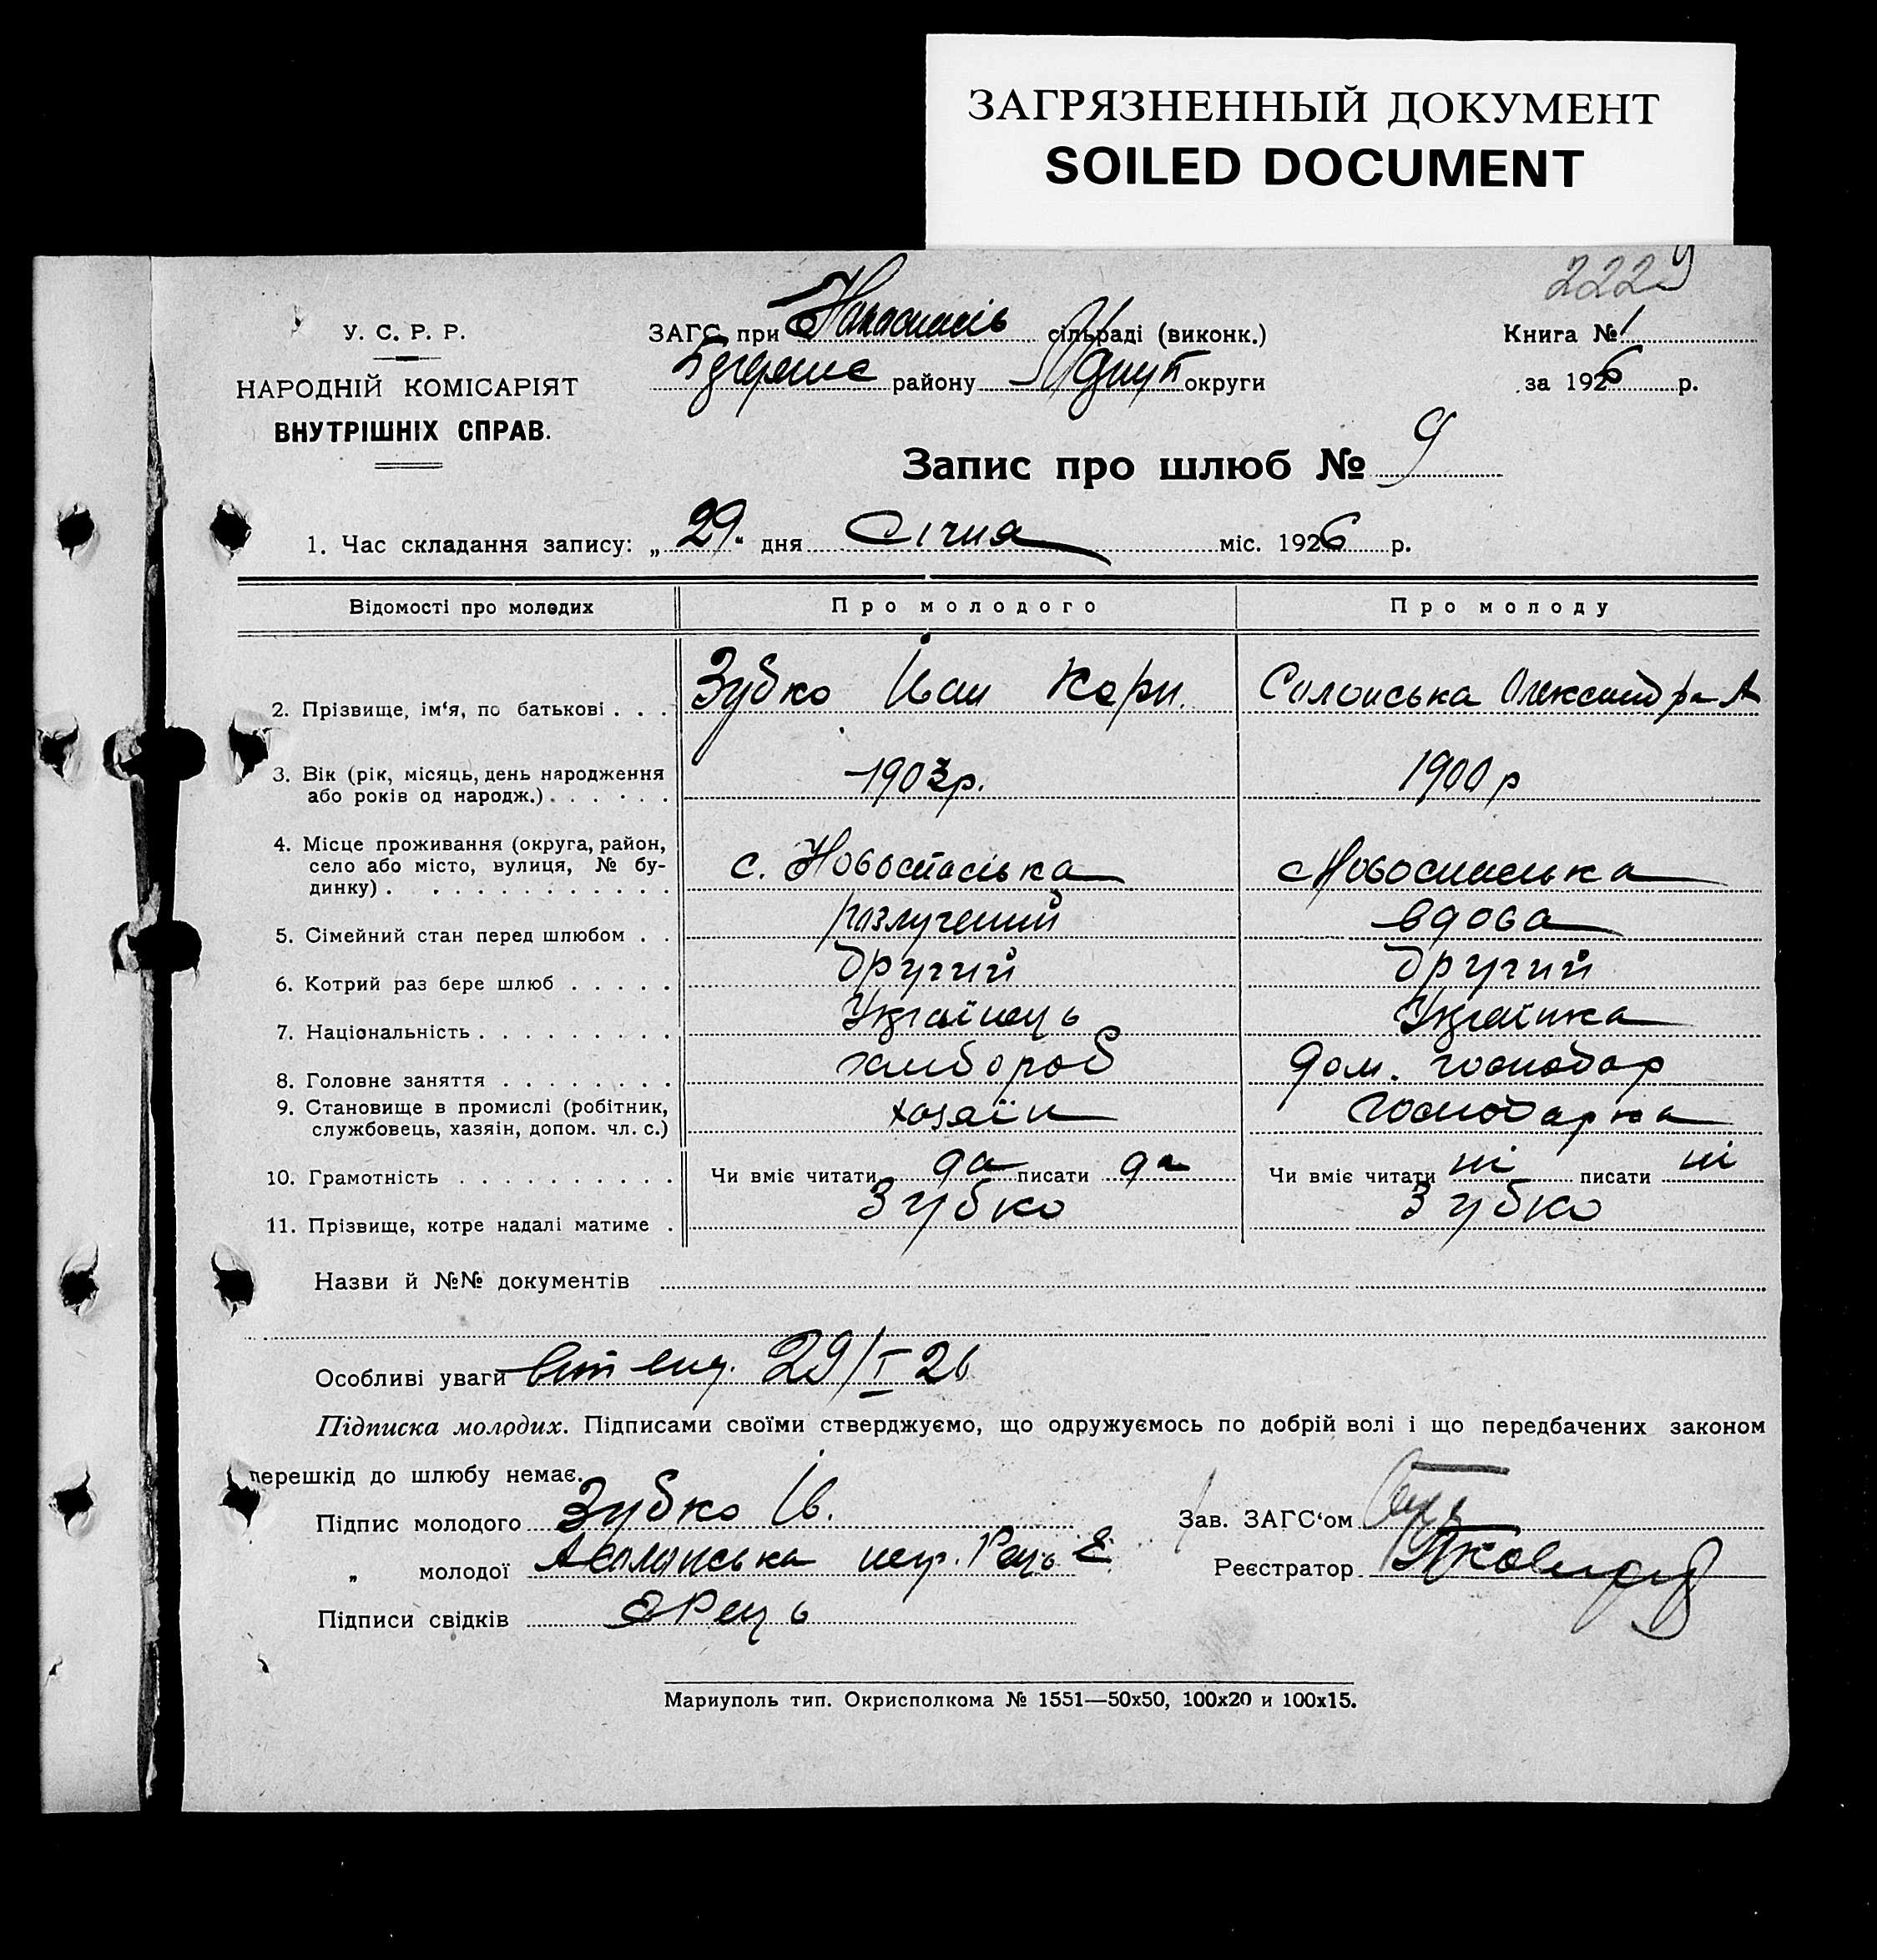 ЗАГРЯЗНЕННЫЙ ДОКУМЕНТ
SOILED DOCUMENT
222 9
У. С. Р. Р.
НАРОДНІЙ КОМІСАРІЯТ
ВНУТРІШНІХ СПРАВ.
ЗАГС при сільраді (виконк.)
району округи
Книга № 1
за 1926 р.
Запис про шлюб № 9
1. Час складання запису: „29" дня Січня міс. 1926 р.
Відомості про молодих Про молодого Про молоду
2. Прізвище, ім‘я, по батькові . . . Зубко Іван Корн. Солонська Олександра А
3. Вік (рік, місяць, день народження
або років од народж.) . . . . . . 1903р. 1900 р
4. Місце проживання (округа, район,
село або місто, вулиця, № бу-
динку) . . . . . . . . . . . . с. Новоспаська с Новоспаська
5. Сімейний стан перед шлюбом . . розлучений вдова
6. Котрий раз бере шлюб . . . . . другий другий
7. Національність . . . . . . . . . Українець Українка
8. Головне заняття . . . . . . . . хлібороб дом. господар
9. Становище в промислі (робітник,
службовець, хазяін, допом. чл. с.) хозяїн господарка
10. Грамотність . . . . . . . . . . Чи вміє читати да писати да Чи вміє читати ні писати ні
11. Прізвище, котре надалі матиме . Зубко Зубко
Назви й №№ документів
Особливі уваги 29/I 26
Підписка молодих. Підписами своїми стверджуємо, що одружуємось по добрій волі і що передбачених законом
перешкід до шлюбу немає.
Підпис молодого Зубко Ів.
„ молодої А Солонська Рець Е
Підписи свідків Е Рець
Зав. ЗАГС‘ом
Реєстратор
Мариуполь тип. Окрисполкома № 1551—50х50, 100х20 и 100х15.